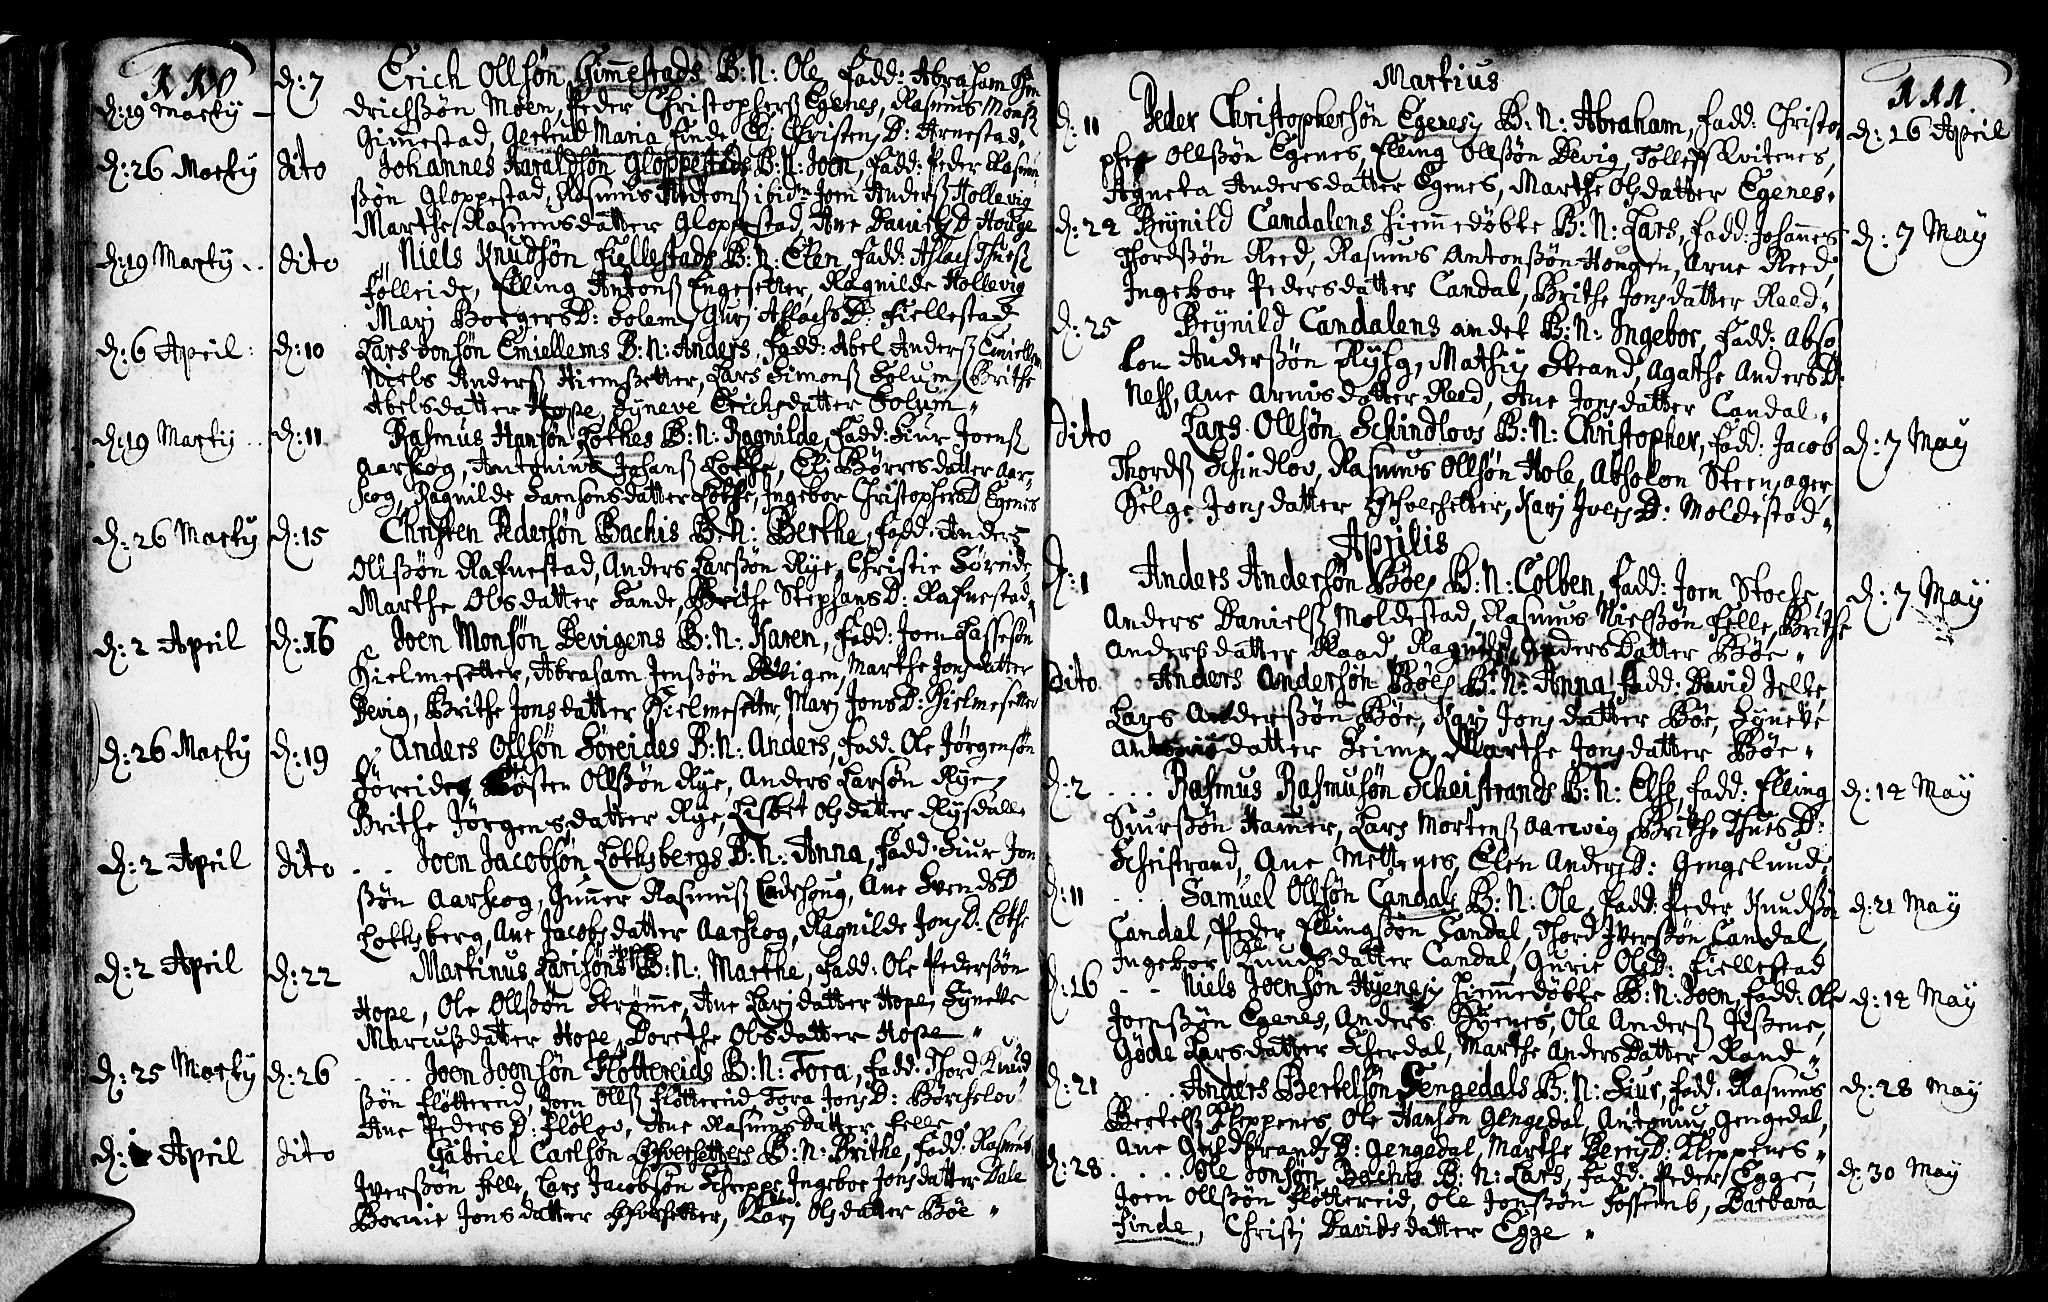 110
d: 19 Marty — d: 7 Erich Ollsøn Gimmestads B: N: Ole, Fadd: Abraham Hin
drichssøn Moen, Peder Christophersß Egenes, Rasmus Monsß
Gimestad, Gertrud Maria Finde, Eli Christens D: Arnestad.
d: 26 Marty dito Johannes Haraldsøn Gloppestads B: N: Joen, Fadd: Peder Rasmu
ßøn Gloppestad, Rasmus Antonsß ibid: Joen Andersß Hollevig
Marthe Rasmusdatter Gloppestad, Ane Daniels D Houge
d: 19 Marty .. dito Niels Knudsøn Fiellestads B: N: Elen Fadd: Aslach
Følleide, Elling Antonsß Engesetter, Ragnilde Hollevig
Mari Borgers D: Solem, Guri Asslachs D: Fiellestad
d: 6 April: d: 10 Lars Jonsøn Emiellems B: N: Anders, Fadd: Abel Andersß Emiellem
Niels Andersß Hiemßetter, Lars Simonsß Solum, Brithe
Abelsdatter Hope, Syneve Erichsdatter Solum "
d: 19 Marty .. d: 11 Rasmus Hansøn Lothes B: N: Ragnilde, Fadd: Siur Joensß
Aarskog, Antonius Johansß Lothe, Eli Børresdatter Aar-
skog, Ragnilde Samsonsdatter Lothe, Ingebor Christophers D Egenes
d: 26 Marty d: 15 Christen Pedersøn Bachis B: N: Berthe, Fadd: Anders
Ollßøn Rafnestad, Anders Larßøn Rye, Christie Søreide
Marthe Olsdatter Sande, Brithe Stephans D: Rafnestad.
d: 2 April d: 16 Joen Monsøn Devigens B: N: Karen, Fadd: Joen Lassesøn
Hielmesetter, Abraham Jenßøn Devigen, Marthe Jonsdatter
Devig, Brithe Jonsdatter Hielmesetter, Mari Jons D: Hielmesetter
d: 26 Marty d: 19 Anders Ollsøn Søreides B: N: Anders, Fadd: Ole Jørgensøn
Søreide, Østen Ollßøn Rye, Anders Larsøn Rye,
Brithe Jørgensdatter Rye, Lisbet Olsdatter Rysdalle
d: 2 April dito .. Joen Jacobsøn Lothsbergs B: N: Anna, Fadd: Siur Jon
ßøn Aarskog, Gunner Rasmusß Ladehoug, Ane Svends D
Lothsberg, Ane Jacobsdatter Aarskog, Ragnilde Jons D: Lothe
d: 2 April d: 22 Martinus Larisøns B: N: Marthe, Fadd: Ole Pederßøn
Hope, Ole Ollßøn Strømme, Ane Larsdatter Hope, Syneve
Marcusdatter Hope, Dorethe Olsdatter Hope "
d: 25 Marty d: 26 .... Joen Joensøn Flottereids B: N: Tora, Fadd: Thord Knud
ßøn Fløttereid, Joen Ollsß Fløttereid Tora Jons D: Børiselov
Ane Peders D: Floløv, Ane Rasmusdatter Felle.
d: 1 April dito Gabriel Carlsøn Hvorsetters B: N: Brithe, Fadd: Rasmus
Iverßøn Felle, Lars Jacobsøn Schreppe, Ingebor Jonsdatter Dale
Bormie Jonsdatter Hvorsetter, Kari Olsdatter Bøe "
Martius 111.
d: 11 Peder Christophersøn Egenesß B: N: Abraham, Fadd: Christo d: 16 April
pher Ollßøn Egenes, Elling Ollßøn Devig, Tollef Qvitenes,
Agneta Andersdatter Egenes, Marthe Olsdatter Egenes.
d: 22 Brynild Candalens hiemmedøbte B: N: Lars, Fadd: Johannes d: 7 May
Thordßøn Reed, Rasmus Antonßøn Hougen, Arne Reed,
Ingebor Pedersdatter Candal, Brithe Jonsdatter Reed.
d: 25 Brynild Candalens andet B: N: Ingebor, Fadd: Abso
lon Anderßøn Rysg, Mathis Strand, Agathe Anders D:
Ness, Ane Arnisdatter Reed, Ane Jonsdatter Candal.
dito Lars Ollsøn Schindlovs B: N: Christopher, Fadd: Jacob d: 7 May
Thordsß Schindlov, Rasmus Ollsøn Hole, Absolon Steensager,
Helge Jonsdatter Hvorsetter, Kari Ivers D: Moldestad "
Aprilis
d: 1 Anders Andersøn Bøes B: N: Colben, Fadd: Joen Stoche, d: 7 May
Anders Danielsß Moldestad, Rasmus Nielßøn Felle, Brithe
Andersdatter Raad, Ragnild Andersdatter Bøe "
dito Anders Andersøn Bøes B: N: Anna, Fadd: David Felle,
Lars Anderßøn Bøe, Kari Jonsdatter Bøe, Syneve
Antonisdatter Seime, Marthe Jonsdatter Bøe "
d: 2 ... Rasmus Rasmusøn Scheistrands B: N: Else, Fadd: Elling d: 14 May
Siurßøn Hammer, Lars Mortensß Aarevig, Brithe Thues D:
Scheistrand, Ane Mettenes, Elen Anders D: Gengelund.
d: 11 ... Samuel Ollsøn Candals B: N: Ole, Fadd: Peder Knudßøn d: 21 May
Candal, Peder Ellingßøn Candal, Thord Iverßøn Candal,
Ingebor Knudsdatter Candal, Gurie Ols D: Fiellestad
d: 16 .. Niels Joensøn Hyenesß hiemmedøbte B: N: Joen, Fadd: Ole d: 14 May
Joenßøn Egenes, Anders Hyenes, Ole Andersß
Gøde Larsdatter Scherdal, Marthe Andersdatter Rand "
d: 21 ... Anders Bertelsøn Gengedals B: N: Siur, Fadd: Rasmus d: 28 May
Bertelsß Kleppenes, Ole Hansøn Gengedal, Antonius Gengedal,
Ane Guldbrands D: Gengedal, Marthe D: Kleppenes "
d: 28 .... Ole Jonsøn Bachis B: N: Lars, Fadd: Peder Egge, d: 30 May
Joen Ollßøn Fløttereid, Ole Jonßøn Fossemb, Barbara
Finde, Christi Davidsdatter Egge "